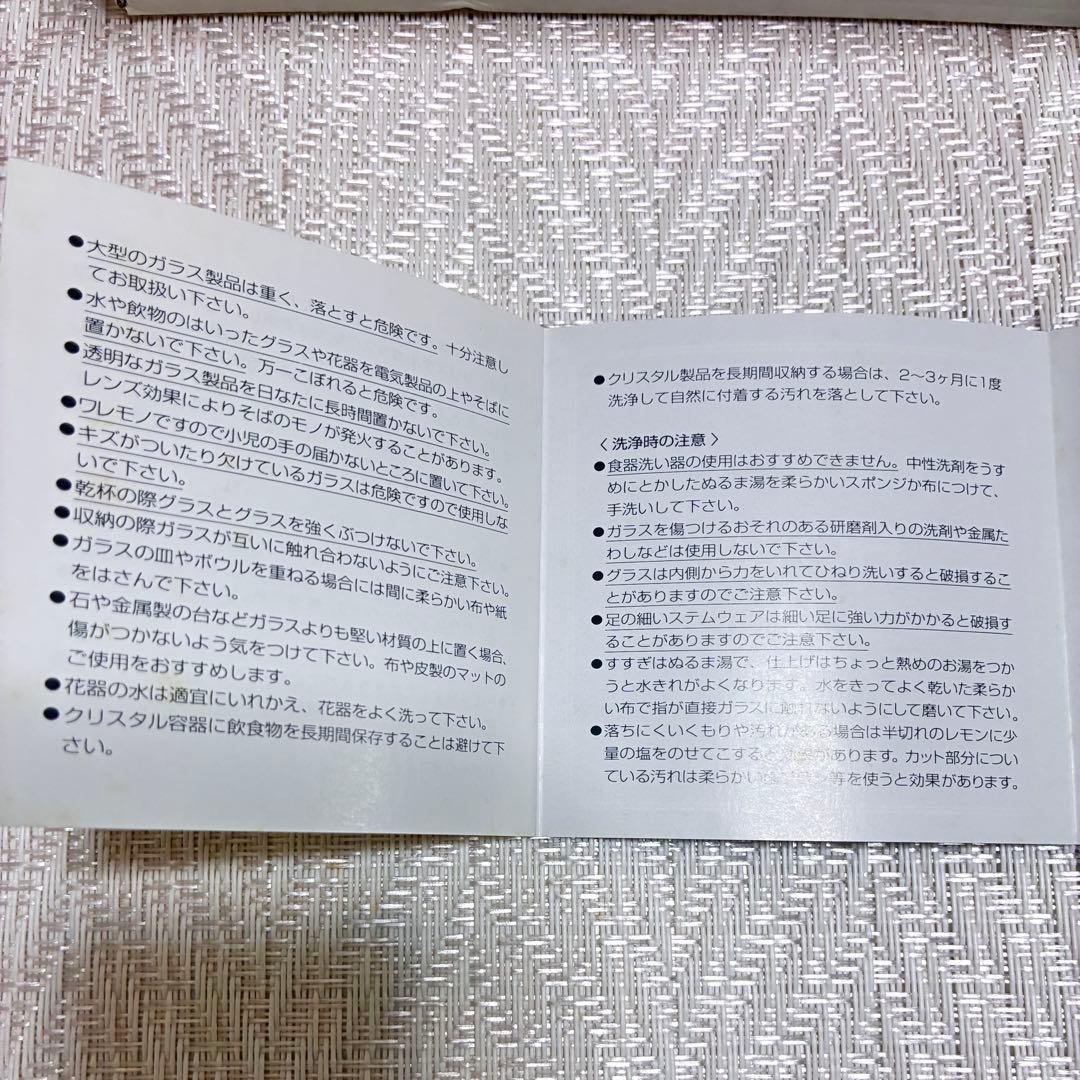 ●大型のガラス製品は重く、落とすと危険です。十分注意し
てお取扱い下さい。
●水や飲物のはいったグラスや花器を電気製品の上やそばに
置かないで下さい。万一こぼれると危険です。
●透明なガラス製品を日なたに長時間置かないで下さい。
レンズ効果によりそばのモノが発火することがあります。
●ワレモノですので小児の手の届かないところに置いて下さい。
●キズがついたり欠けているガラスは危険ですので使用しな
いで下さい。
●乾杯の際グラスとグラスを強くぶつけないで下さい。
●収納の際ガラスが互いに触れ合わないようにご注意下さい。
●ガラスの皿やボウルを重ねる場合には間に柔らかい布や紙
をはさんで下さい。
●石や金属製の台などガラスよりも堅い材質の上に置く場合、
傷がつかないよう気をつけて下さい。布や皮製のマットの
ご使用をおすすめします。
●花器の水は適宜にいれかえ、花器をよく洗って下さい。
●クリスタル容器に飲食物を長期間保存することは避けて下
さい。
●クリスタル製品を長期間収納する場合は、2〜3ヶ月に1度
洗浄して自然に付着する汚れを落として下さい。
〈洗浄時の注意〉
●食器洗い器の使用はおすすめできません。中性洗剤をうす
めにとかしたぬるま湯を柔らかいスポンジか布につけて、
手洗いして下さい。
●ガラスを傷つけるおそれのある研磨剤入りの洗剤や金属た
わしなどは使用しないで下さい。
●グラスは内側から力をいれてひねり洗いすると破損するこ
とがありますのでご注意下さい。
●足の細いステムウェアは細い足に強い力がかかると破損す
ることがありますのでご注意下さい。
●すすぎはぬるま湯で、仕上げはちょっと熱めのお湯をつか
うと水きれがよくなります。水をきってよく乾いた柔らか
い布で指が直接ガラスに触れないようにして磨いて下さい。
●落ちにくいくもりや汚れがある場合は半切れのレモンに少
量の塩をのせてこすると効果があります。カット部分につい
ている汚れは柔らかい等を使うと効果があります。